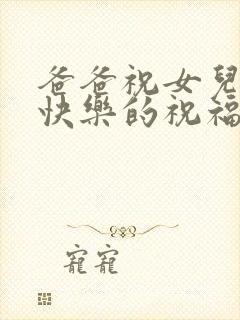 爸爸祝女兒
快樂的祝福
寵寵